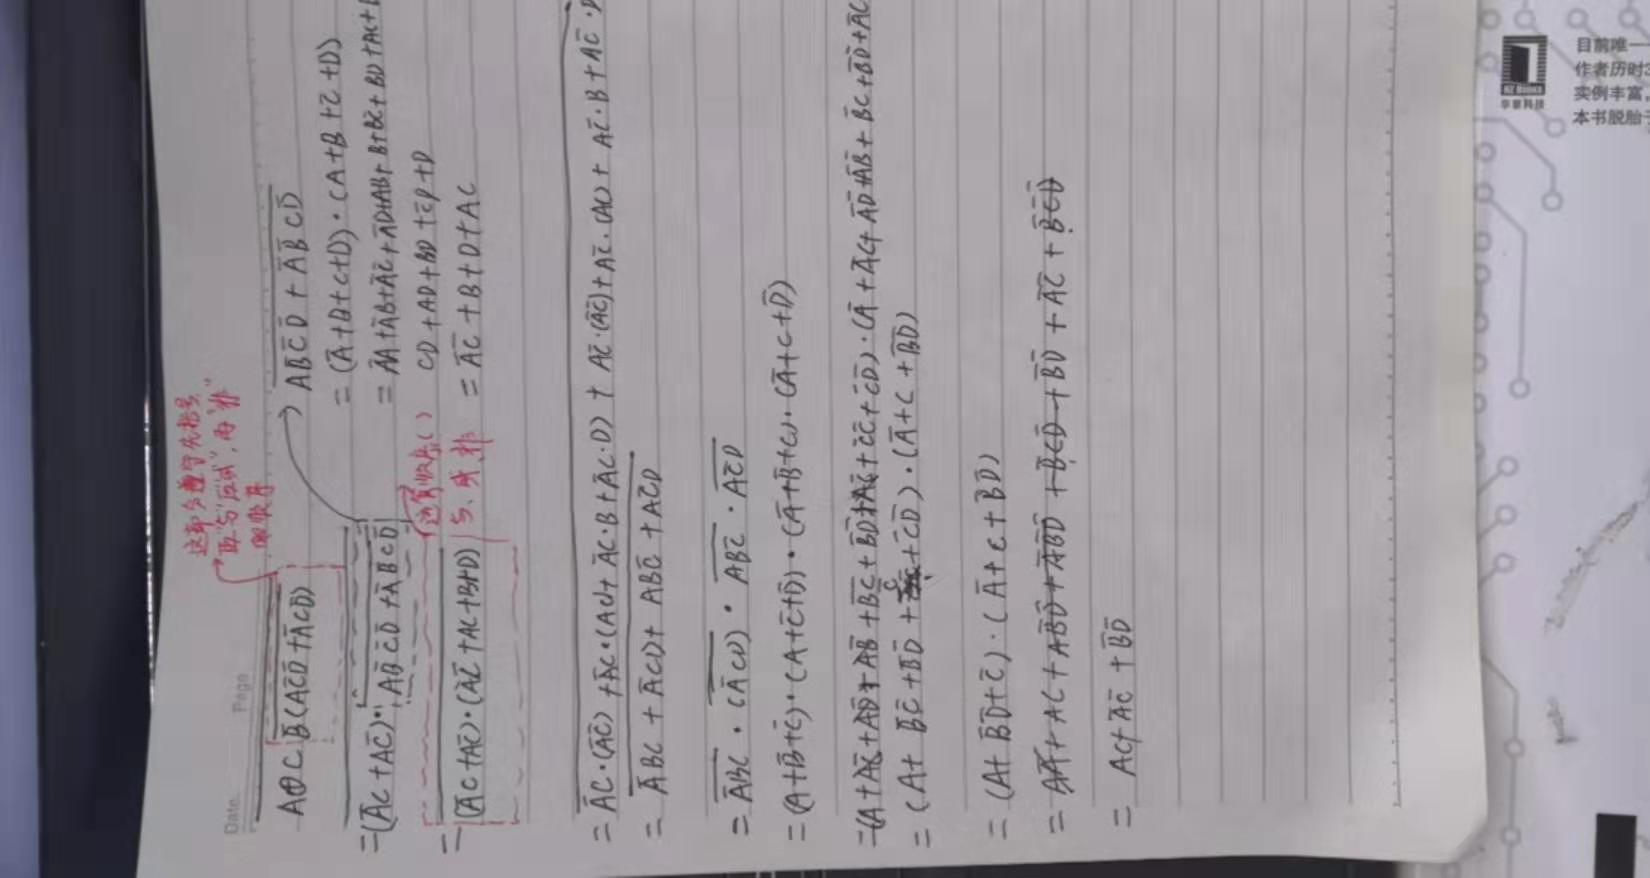 Date. Page
这部分
A⊕C B̅(AC̅D̅+A̅CD)
=(A̅C+AC̅)·AB̅C̅D̅+A̅B̅CD̅
=(A̅C+AC̅)·(A̅C̅+AC+B+D)
与、或、非
AB̅C̅D̅+A̅B̅CD̅
=(A̅+B+C+D)·(A+B+C̅+D)
=A̅A+A̅B+A̅C̅+A̅D+AB+B+BC̅+BD+AC+
CD+AD+BD+C̅D+D
=A̅C̅+B+D+AC
=A̅C·(A̅C̅)+A̅C·(AC)+A̅C·B+A̅C·D)+AC̅·(A̅C̅)+AC̅·(AC)+AC̅·B+AC̅·D
=A̅BC+A̅CD+ABC̅+AC̅D
=A̅BC·(A̅CD)·ABC̅·AC̅D
=(A+B̅+C̅)·(A+C̅+D̅)·(A̅+B̅+C)·(A̅+C+D̅)
=(A+AC̅+AD̅+AB̅+B̅C̅+B̅D̅+AC̅+C̅C̅+C̅D̅)·(A̅+A̅C+A̅D̅+A̅B̅+B̅C+B̅D̅+A̅C
=(A+B̅C̅+B̅D̅+C̅+C̅D̅)·(A̅+C+B̅D̅)
=(A+B̅D̅+C̅)·(A̅+C+B̅D̅)
=AA̅+AC+AB̅D̅+A̅B̅D̅+B̅CD̅+B̅D̅+A̅C̅+B̅C̅D̅
=AC+A̅C̅+B̅D̅
HZ Books
华章科技
目前唯一
作者历时3
实例丰富，
本书脱胎于